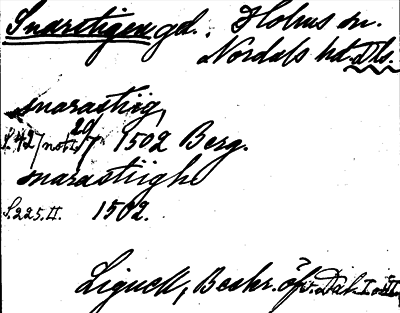 Snarstigen gd. Holms sn.
Nordals hd Dls.
snarastiig,
S. 427 not 1 20/7 1502 Berg.
snarastiigh
S. 225. II. 1502.
Lignell, Beskr. öfv. Dal. I o. II